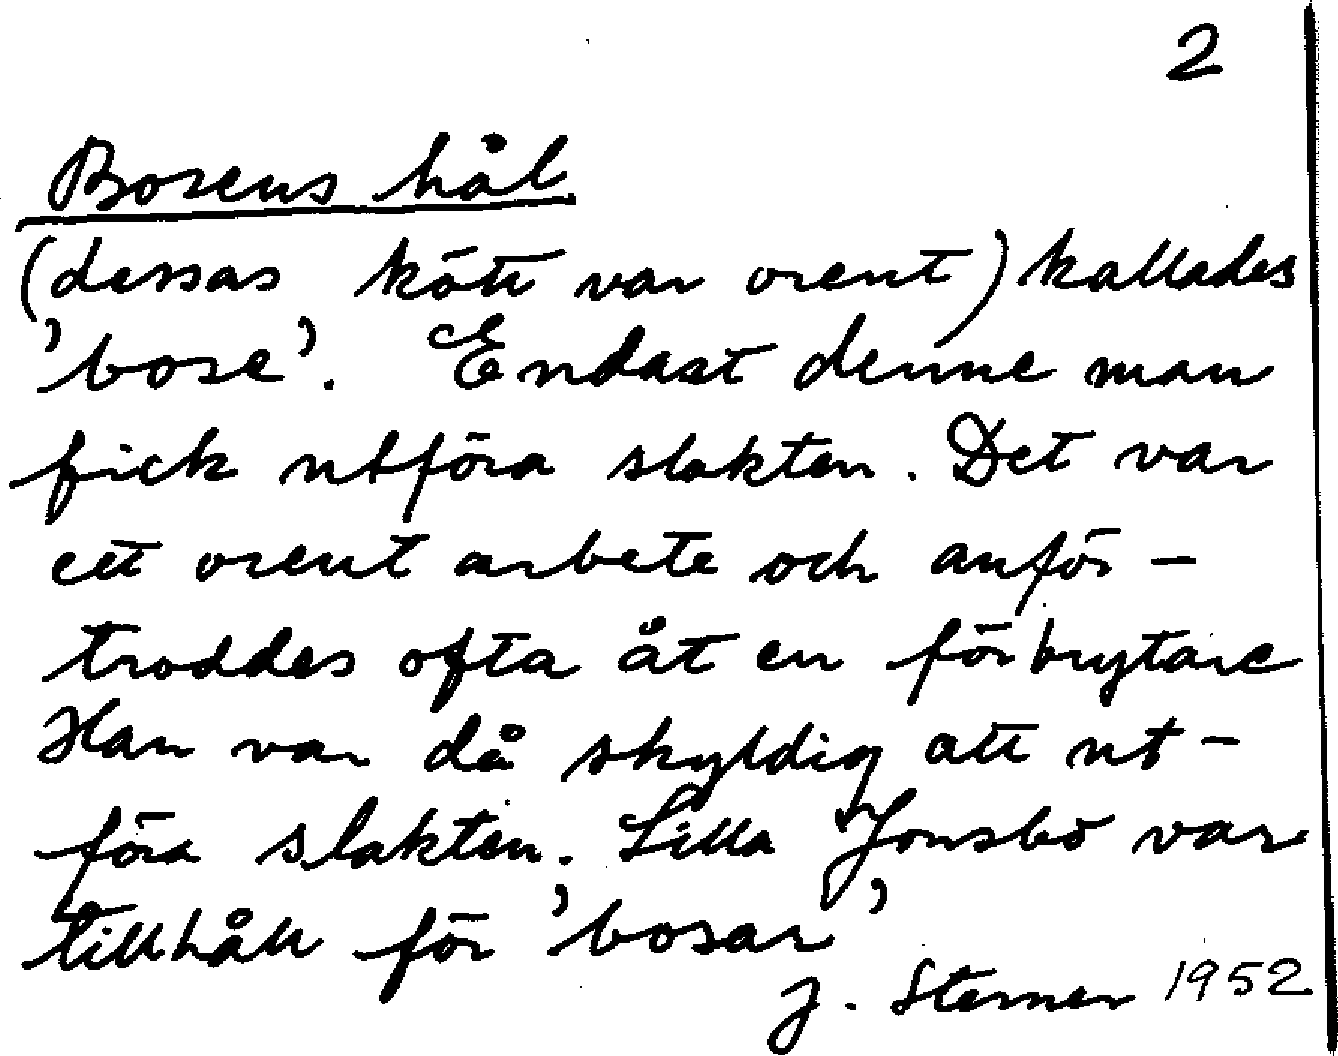 2
Bosens hål
(dessas kött var orent) kallades
'bose'. Endast denne man
fick utföra slakten. Det var
ett orent arbete och anför-
troddes ofta åt en förbrytare
Han var då skyldig att ut-
föra slakten. Lilla Jonsbo var
tillhåll för 'bosar'
J. Sterner 1952